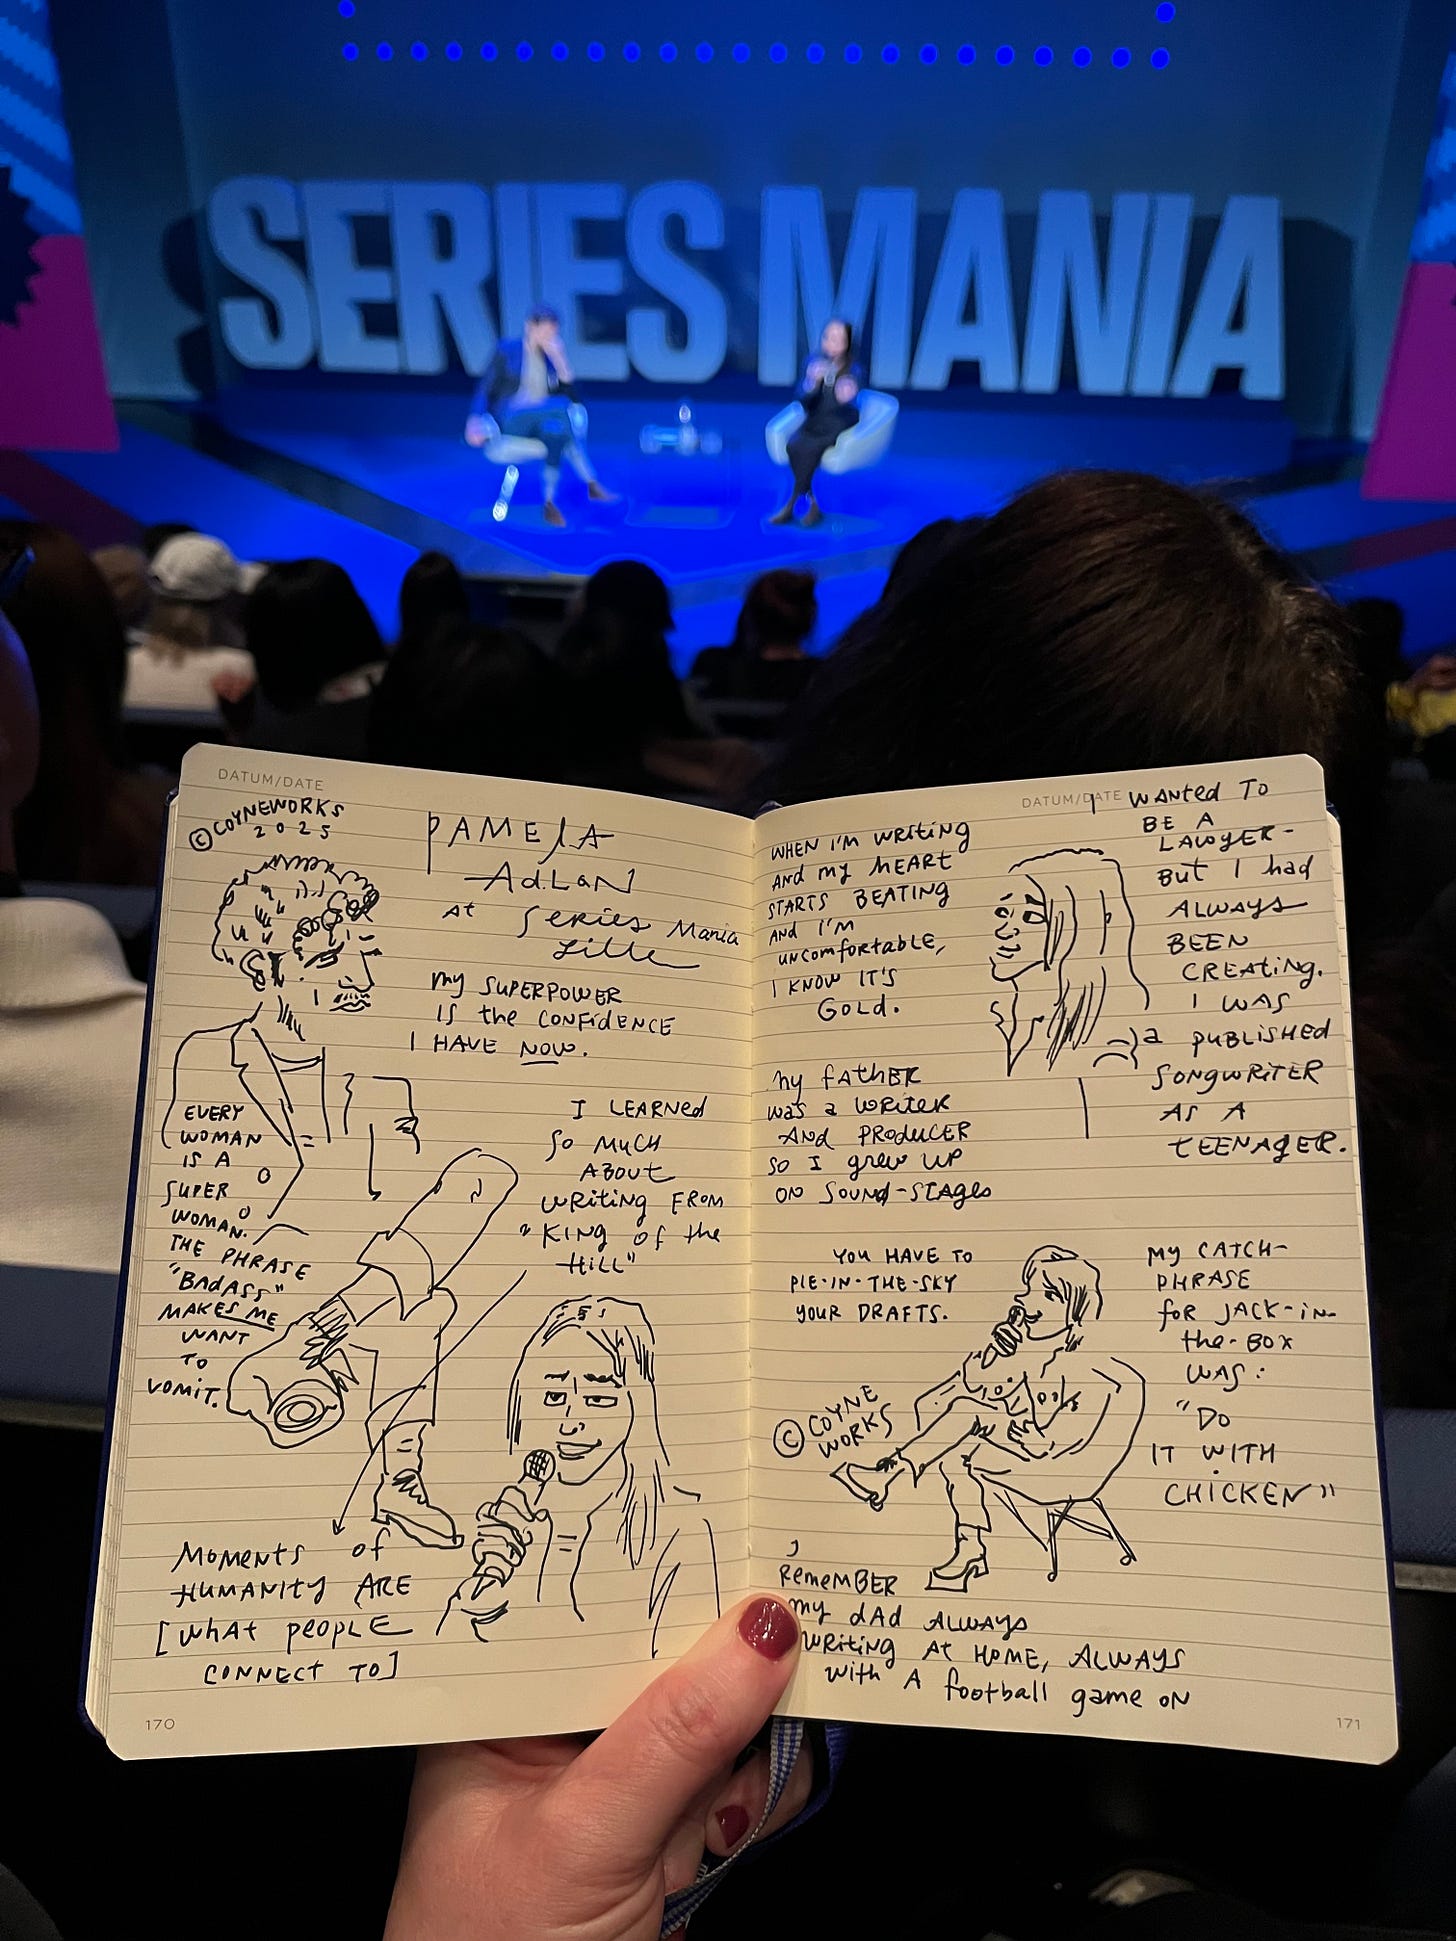 SERIES MANIA
DATUM/DATE
© COYNEWORKS
2025
PAMELA
ADLON
AT SERIES MANIA
LILLE
MY SUPERPOWER
IS THE CONFIDENCE
I HAVE NOW.
EVERY
WOMAN
IS A
SUPER
WOMAN.
THE PHRASE
"BADASS"
MAKES ME
WANT
TO
VOMIT.
I LEARNED
SO MUCH
ABOUT
WRITING FROM
"KING OF THE
HILL"
MOMENTS OF
HUMANITY ARE
[WHAT PEOPLE
CONNECT TO]
170
DATUM/DATE
WHEN I'M WRITING
AND MY HEART
STARTS BEATING
AND I'M
UNCOMFORTABLE,
I KNOW IT'S
GOLD.
I WANTED TO
BE A
LAWYER-
BUT I HAD
ALWAYS
BEEN
CREATING.
I WAS
a PUBLISHED
SONGWRITER
AS A
TEENAGER.
MY FATHER
WAS a WRITER
AND PRODUCER
SO I GREW UP
ON SOUND-STAGES
YOU HAVE TO
PIE-IN-THE-SKY
YOUR DRAFTS.
MY CATCH-
PHRASE
FOR JACK-IN-
THE-BOX
WAS:
"DO
IT WITH
CHICKEN"
© COYNE
WORKS
I
REMEMBER
MY DAD ALWAYS
WRITING AT HOME, ALWAYS
WITH A FOOTBALL GAME ON
171